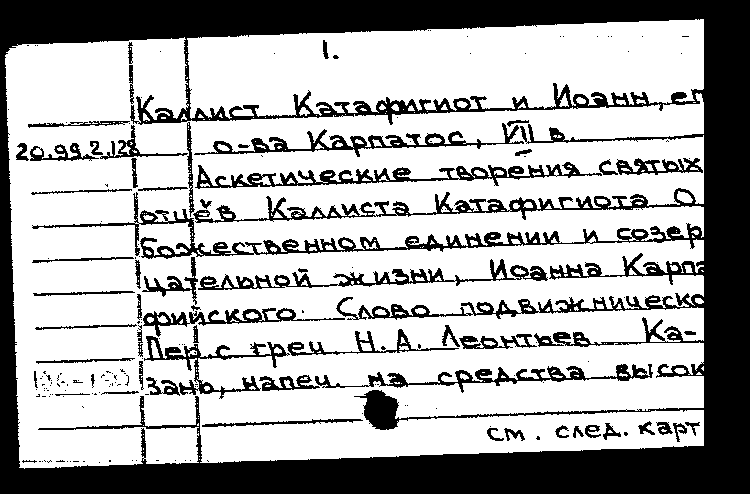 1.
Каллист Катафигиот и Иоанн, еп
20.99.2.128 о-ва Карпатос, VII в.
Аскетические творения святых
отцёв Каллиста Катафигиота О
божественном единении и созер
цательной жизни, Иоанна Карпа
фийского. Слово подвижническо
Пер. с греч. Н.А. Леонтьев. Ка-
зань, напеч. на средства высок
см. след. карт